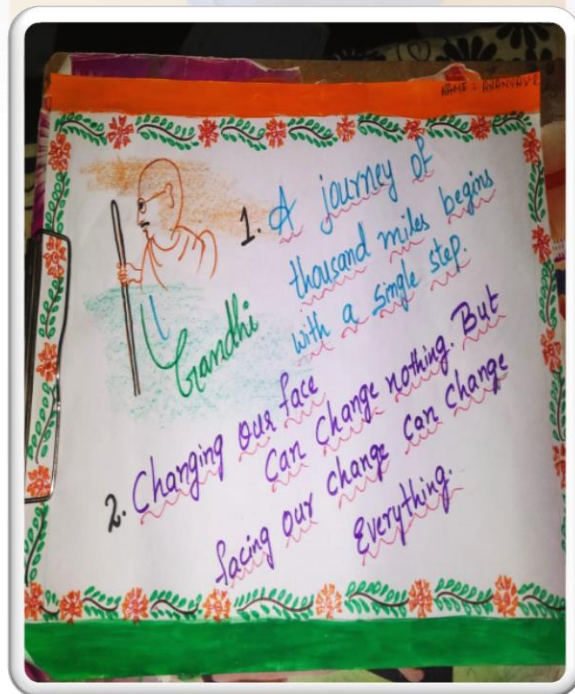 NAME:
1. A journey of
thousand miles begins
with a single step.
Gandhi
2. Changing our face
Can Change nothing. But
facing our change can change
Everything.